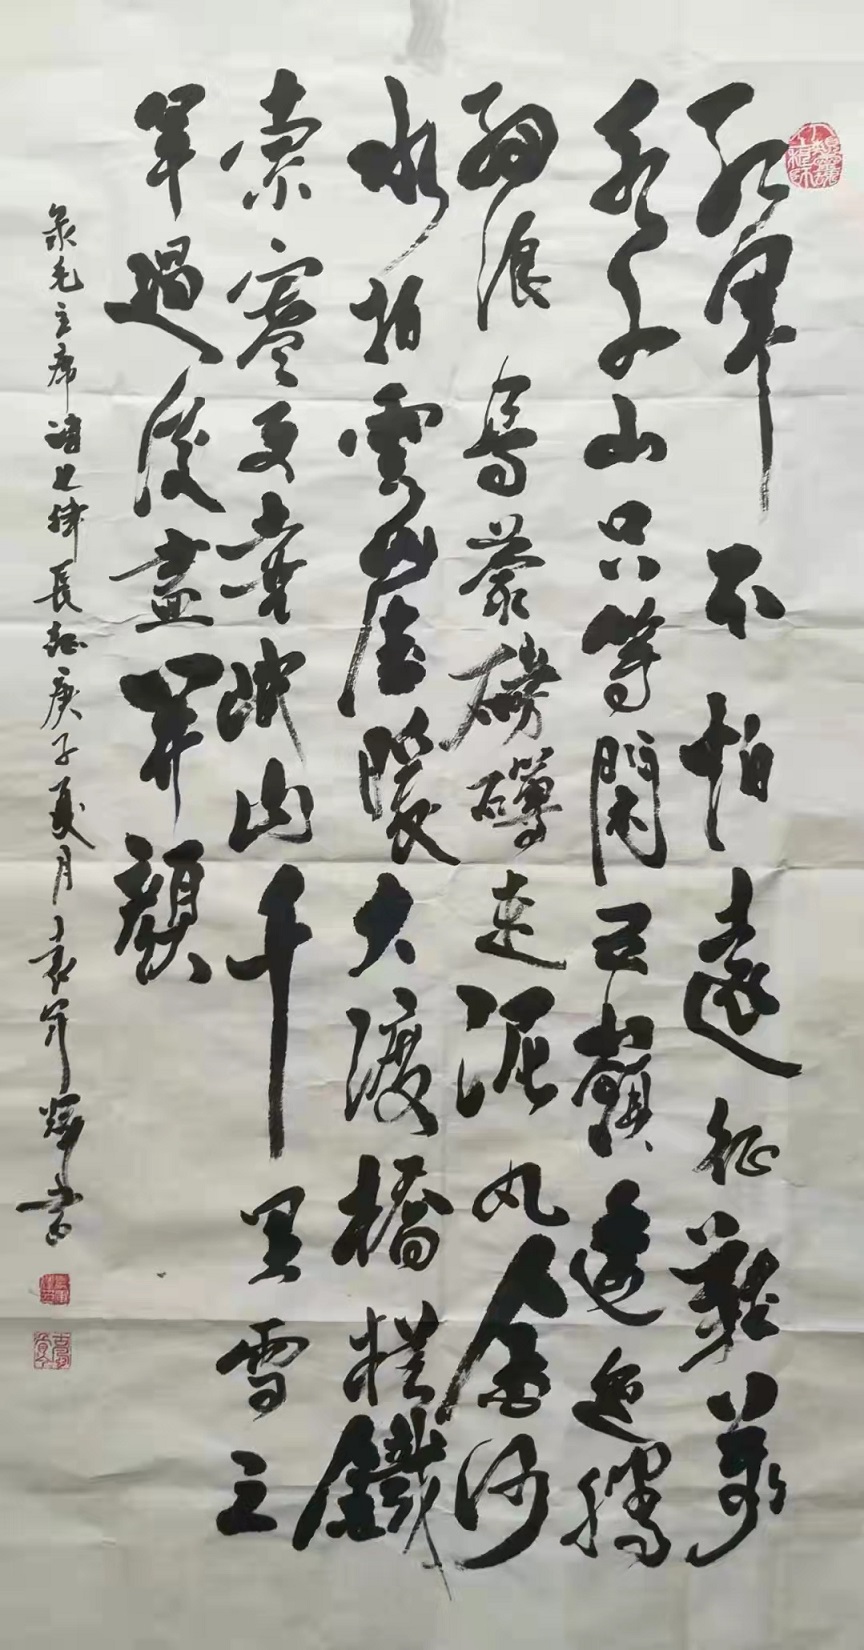 紅軍不怕遠征難萬
水千山只等閑五嶺逶迤騰
細浪烏蒙磅礴走泥丸金沙
水拍雲崖暖大渡橋橫鐵
索寒更喜岷山千里雪三
軍過後盡開顏
录毛主席诗七律長征庚子夏月袁軍輝書